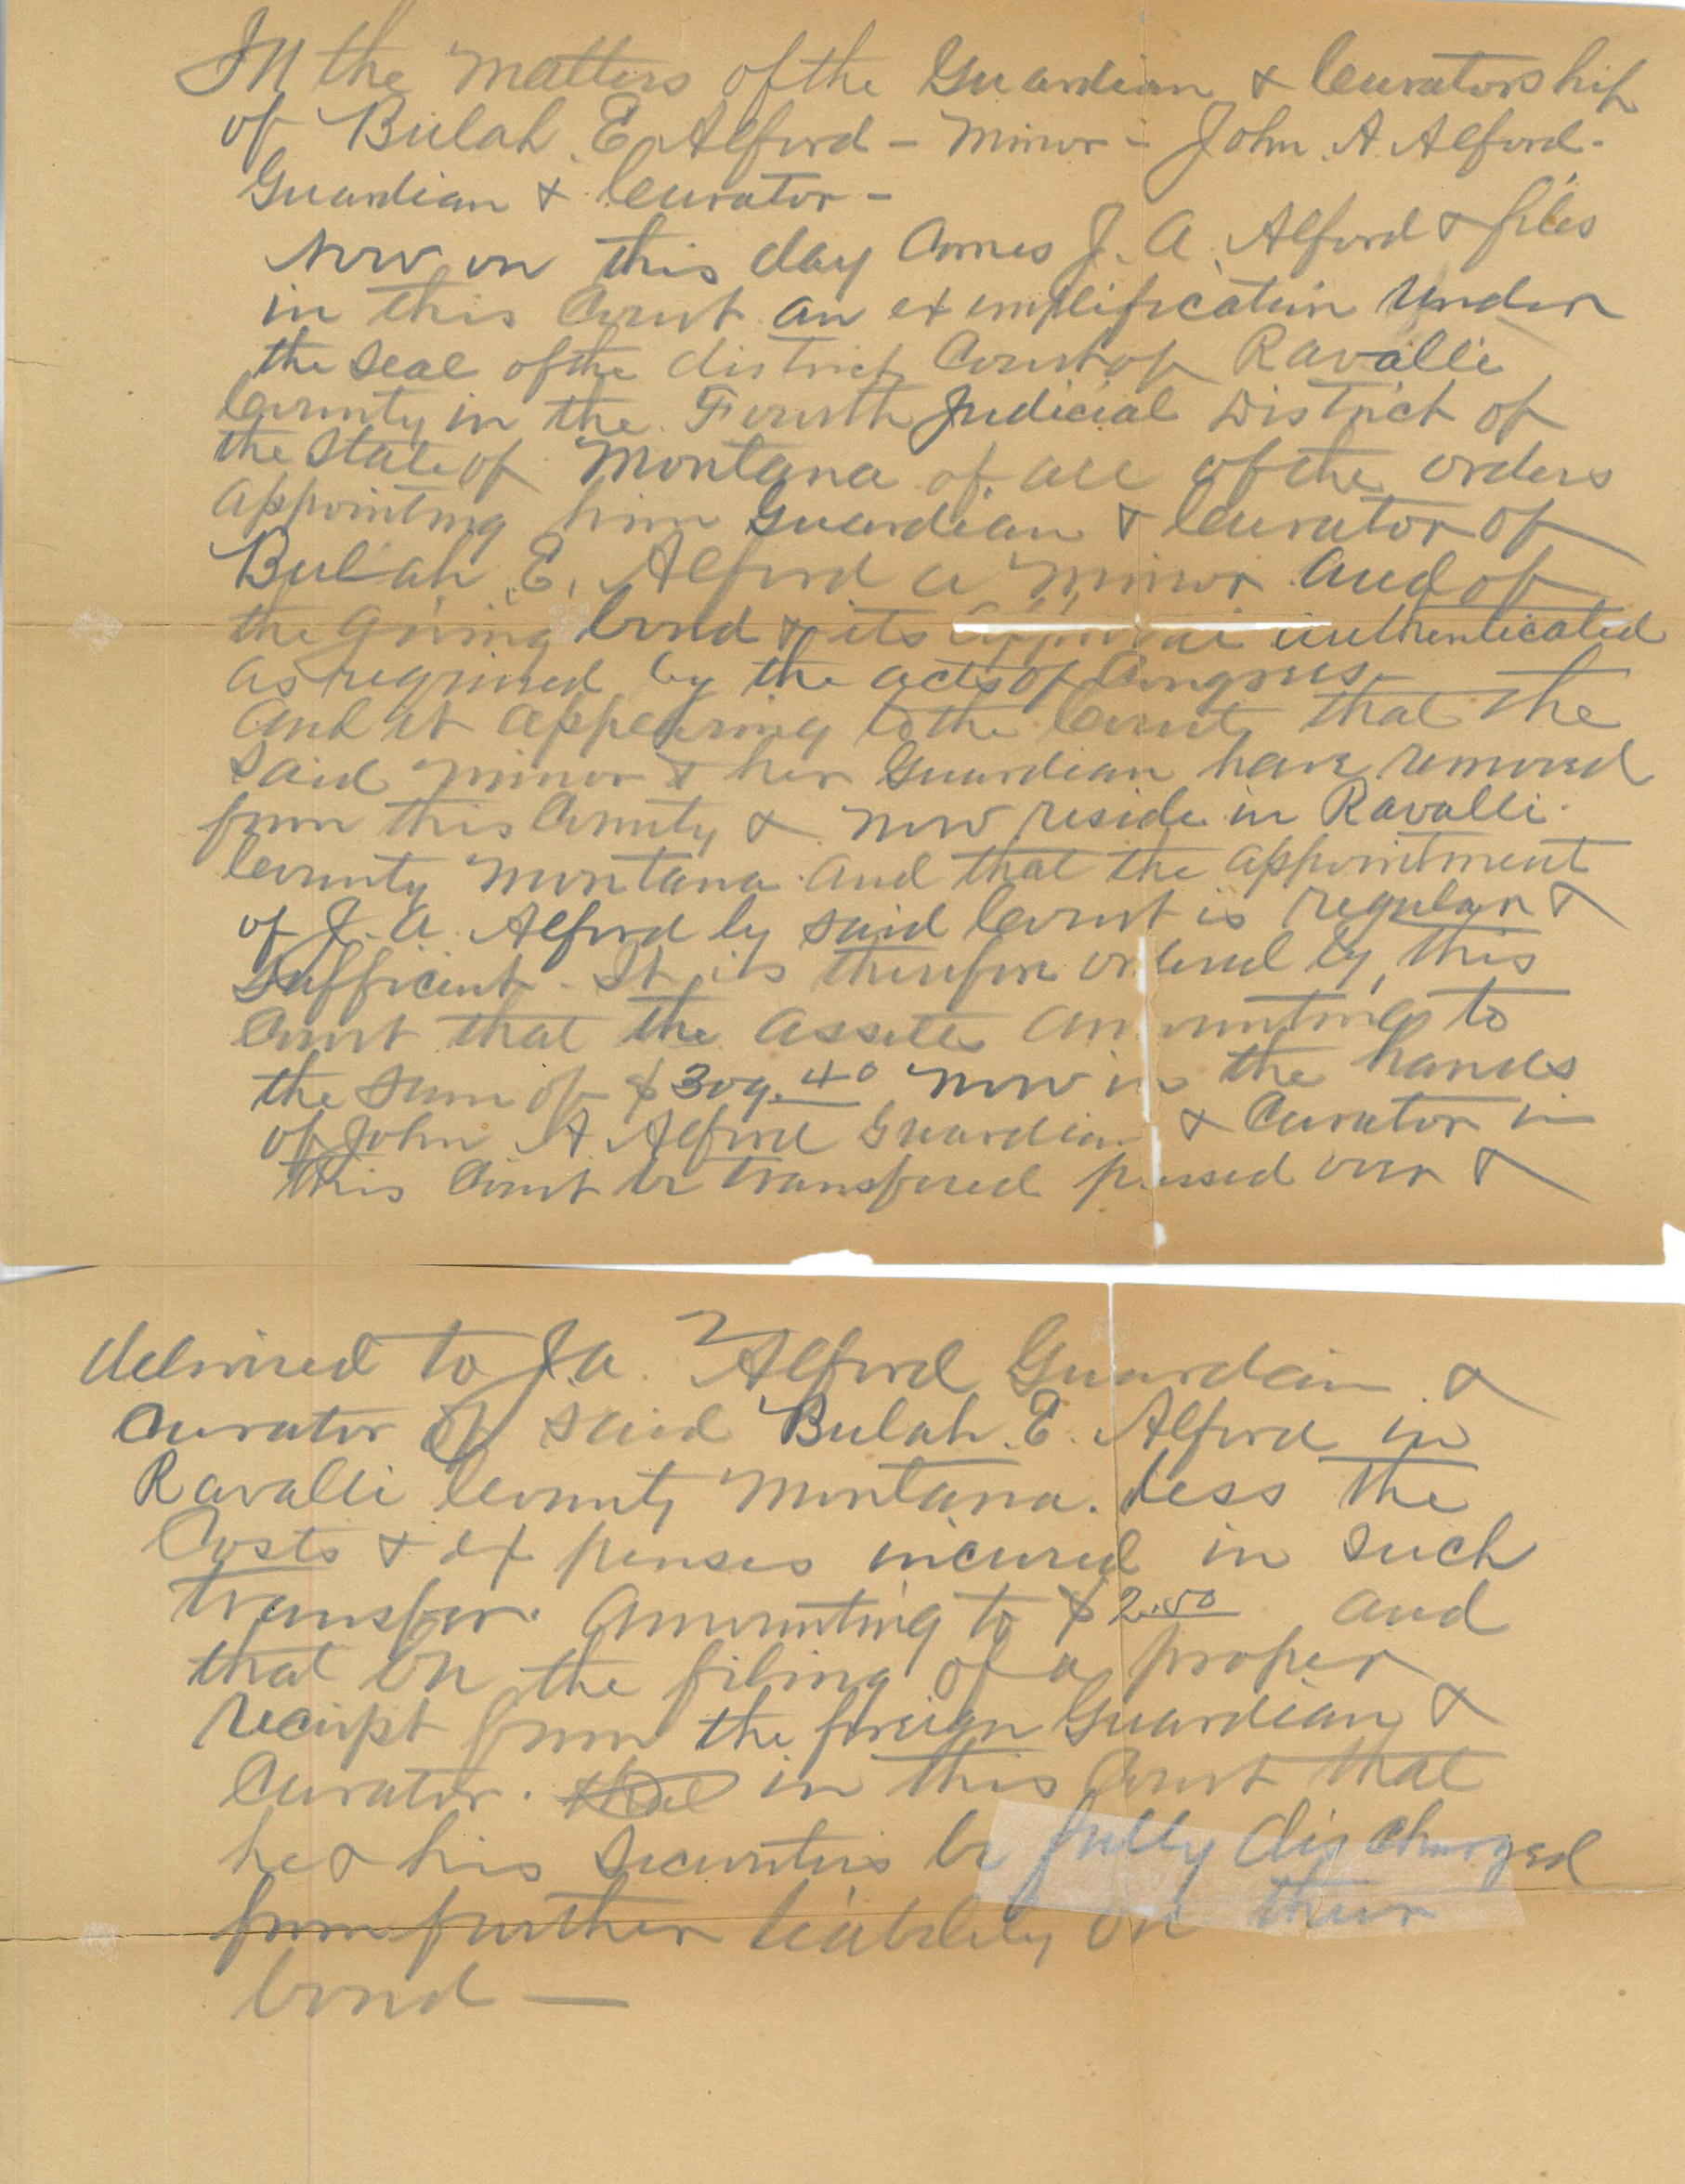 In the matters of the Guardian & Curatorship
of Bulah E. Alford - minor - John A. Alford -
Guardian & Curator -
Now on this day Comes J. A. Alford & files
in this Court an exemplification under
the seal of the district Court of Ravalli
County in the Fourth Judicial District of
the State of Montana of all of the orders
appointing him Guardian & Curator of
Bulah E. Alford a minor and of
the giving bond & its approval authenticated
as required by the acts of Congress
And it appearing to the Court that the
said minor & her Guardian have removed
from this County & now reside in Ravalli
County Montana and that the appointment
of J. A. Alford by said Court is regular &
sufficient. It is therefore ordered by this
Court that the assetts amounting to
the sum of $309.40 now in the hands
of John A Alford Guardian & Curator in
this Court be transfered passed over &
delivired to J. A. Alford Guardain &
Curator of said Bulah E. Alford in
Ravalli County Montana. Less the
Costs & expenses incured in such
transfer. Amounting to $2.50 and
that on the filing of a proper
reciept from the foreign Guardian &
Curator. in this Court that
he & his Securities be fully discharged
from further liability on their
bond —